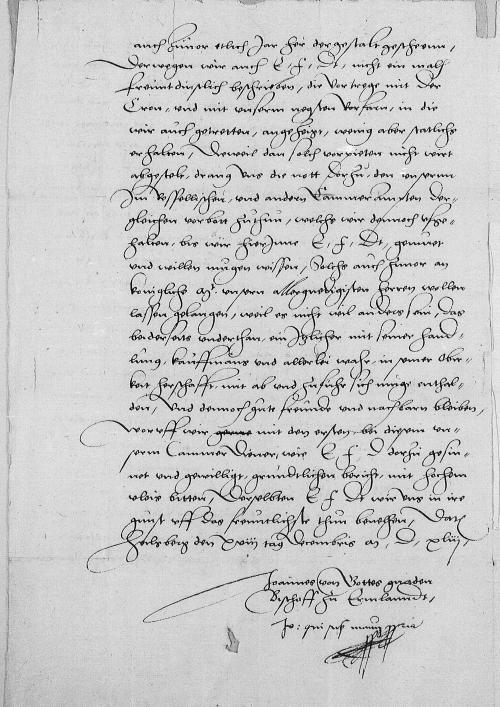 auch hiuor etlich Jar her dergestalt gescheenn,
Derwegen wir auch E. f. Dt. nicht ein mall
freuntdinstlich beschrieben, die vortrege mit der
Cron, und mit unserm negsten vorfarn, in die
wir auch getretten, angeheigt, wenig aber statlichs
erhalten, Dieweil dan solch vorpieten nicht wirt
abgestelt, drang uns die nott dorhu, den unserm
Im Resselischen und andern Cammerampten der-
gleichen vorbott zuthun, welchs wir dennoch uffge-
halten, bis wir hierInne E. f. Dt. gemuet
und willen mugen wissen, Solchs auch hiuor an
konigliche Mt. unsern allergnedigsten herren wollen
lassen gelangen, weil es nicht wil anders sein, das
beiderseits underthan, ein Itzlicher mit seiner hand-
lung, kauffmans und allerlei wahr, in seiner Ober-
keit herschafft, mit ab und zufuhr sich muge enthal-
den, Und dennoch gute freunde und nachbarn bleiben,
Woruff wir mit den ersten bei diesem un-
serm Cammerdiener, wie E. f. D. dorhu gesin-
net und gewilligt, gruntlichen bericht, mit hochem
vleis bitten, Derselbten E. f. Dt. wir uns in ire
gunst uff das freuntlichste thun beuelhen, Datum
Heilsberg den xviij tag Decembris an. D. xliij.
Joannes von Gottes gnaden
Bischoff zu Ermlanndt,
Jo: qui supra manu ppria